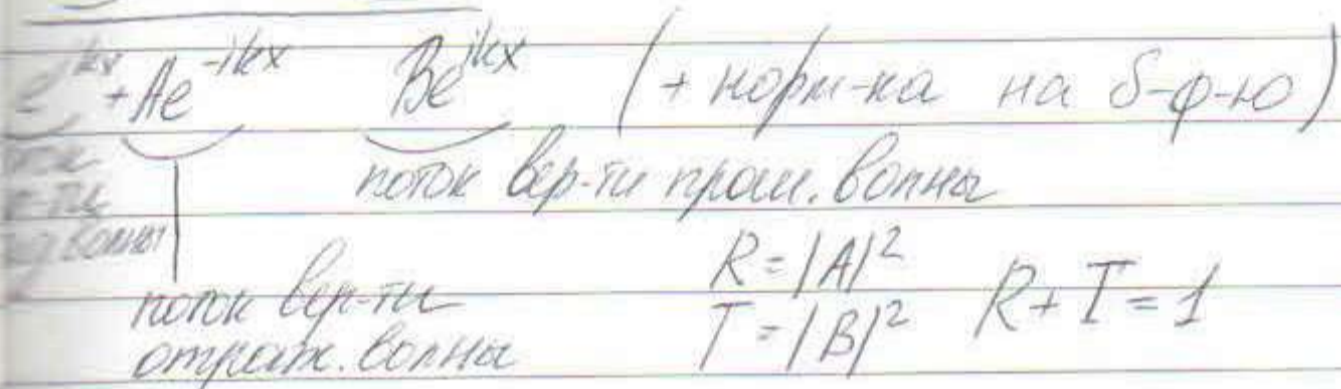 e^{ikx} + Ae^{-ikx} Be^{ikx} (+ норм-ка на δ-ф-ю)
поток вер-ти прош. волны
волны
поток вер-ти
отраж. волны
R = |A|^2
T = |B|^2 R + T = 1